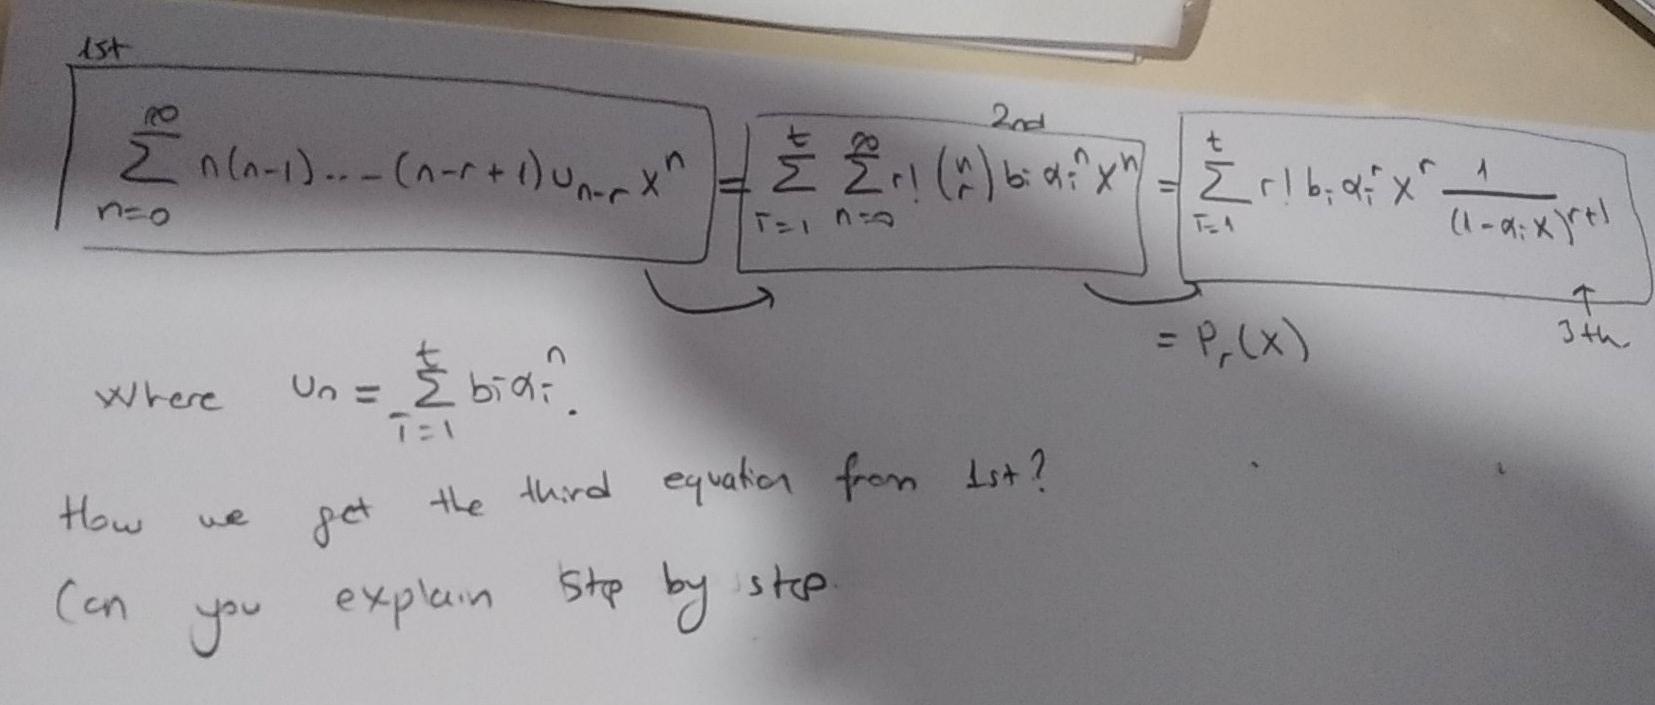 1st
∑_{n=0}^{∞} n(n-1)...-(n-r+1)u_{n-r} x^n = ∑_{i=1}^{t} ∑_{n=0}^{∞} r! (n r) b_i α_i^n x^n = ∑_{i=1}^{t} r! b_i α_i^r x^r 1/(1-α_i x)^{r+1}
2nd
3th
= P_r(x)
Where u_n = ∑_{i=1}^{t} b_i α_i^n.
How we get the third equation from 1st?
Can you explain step by step.